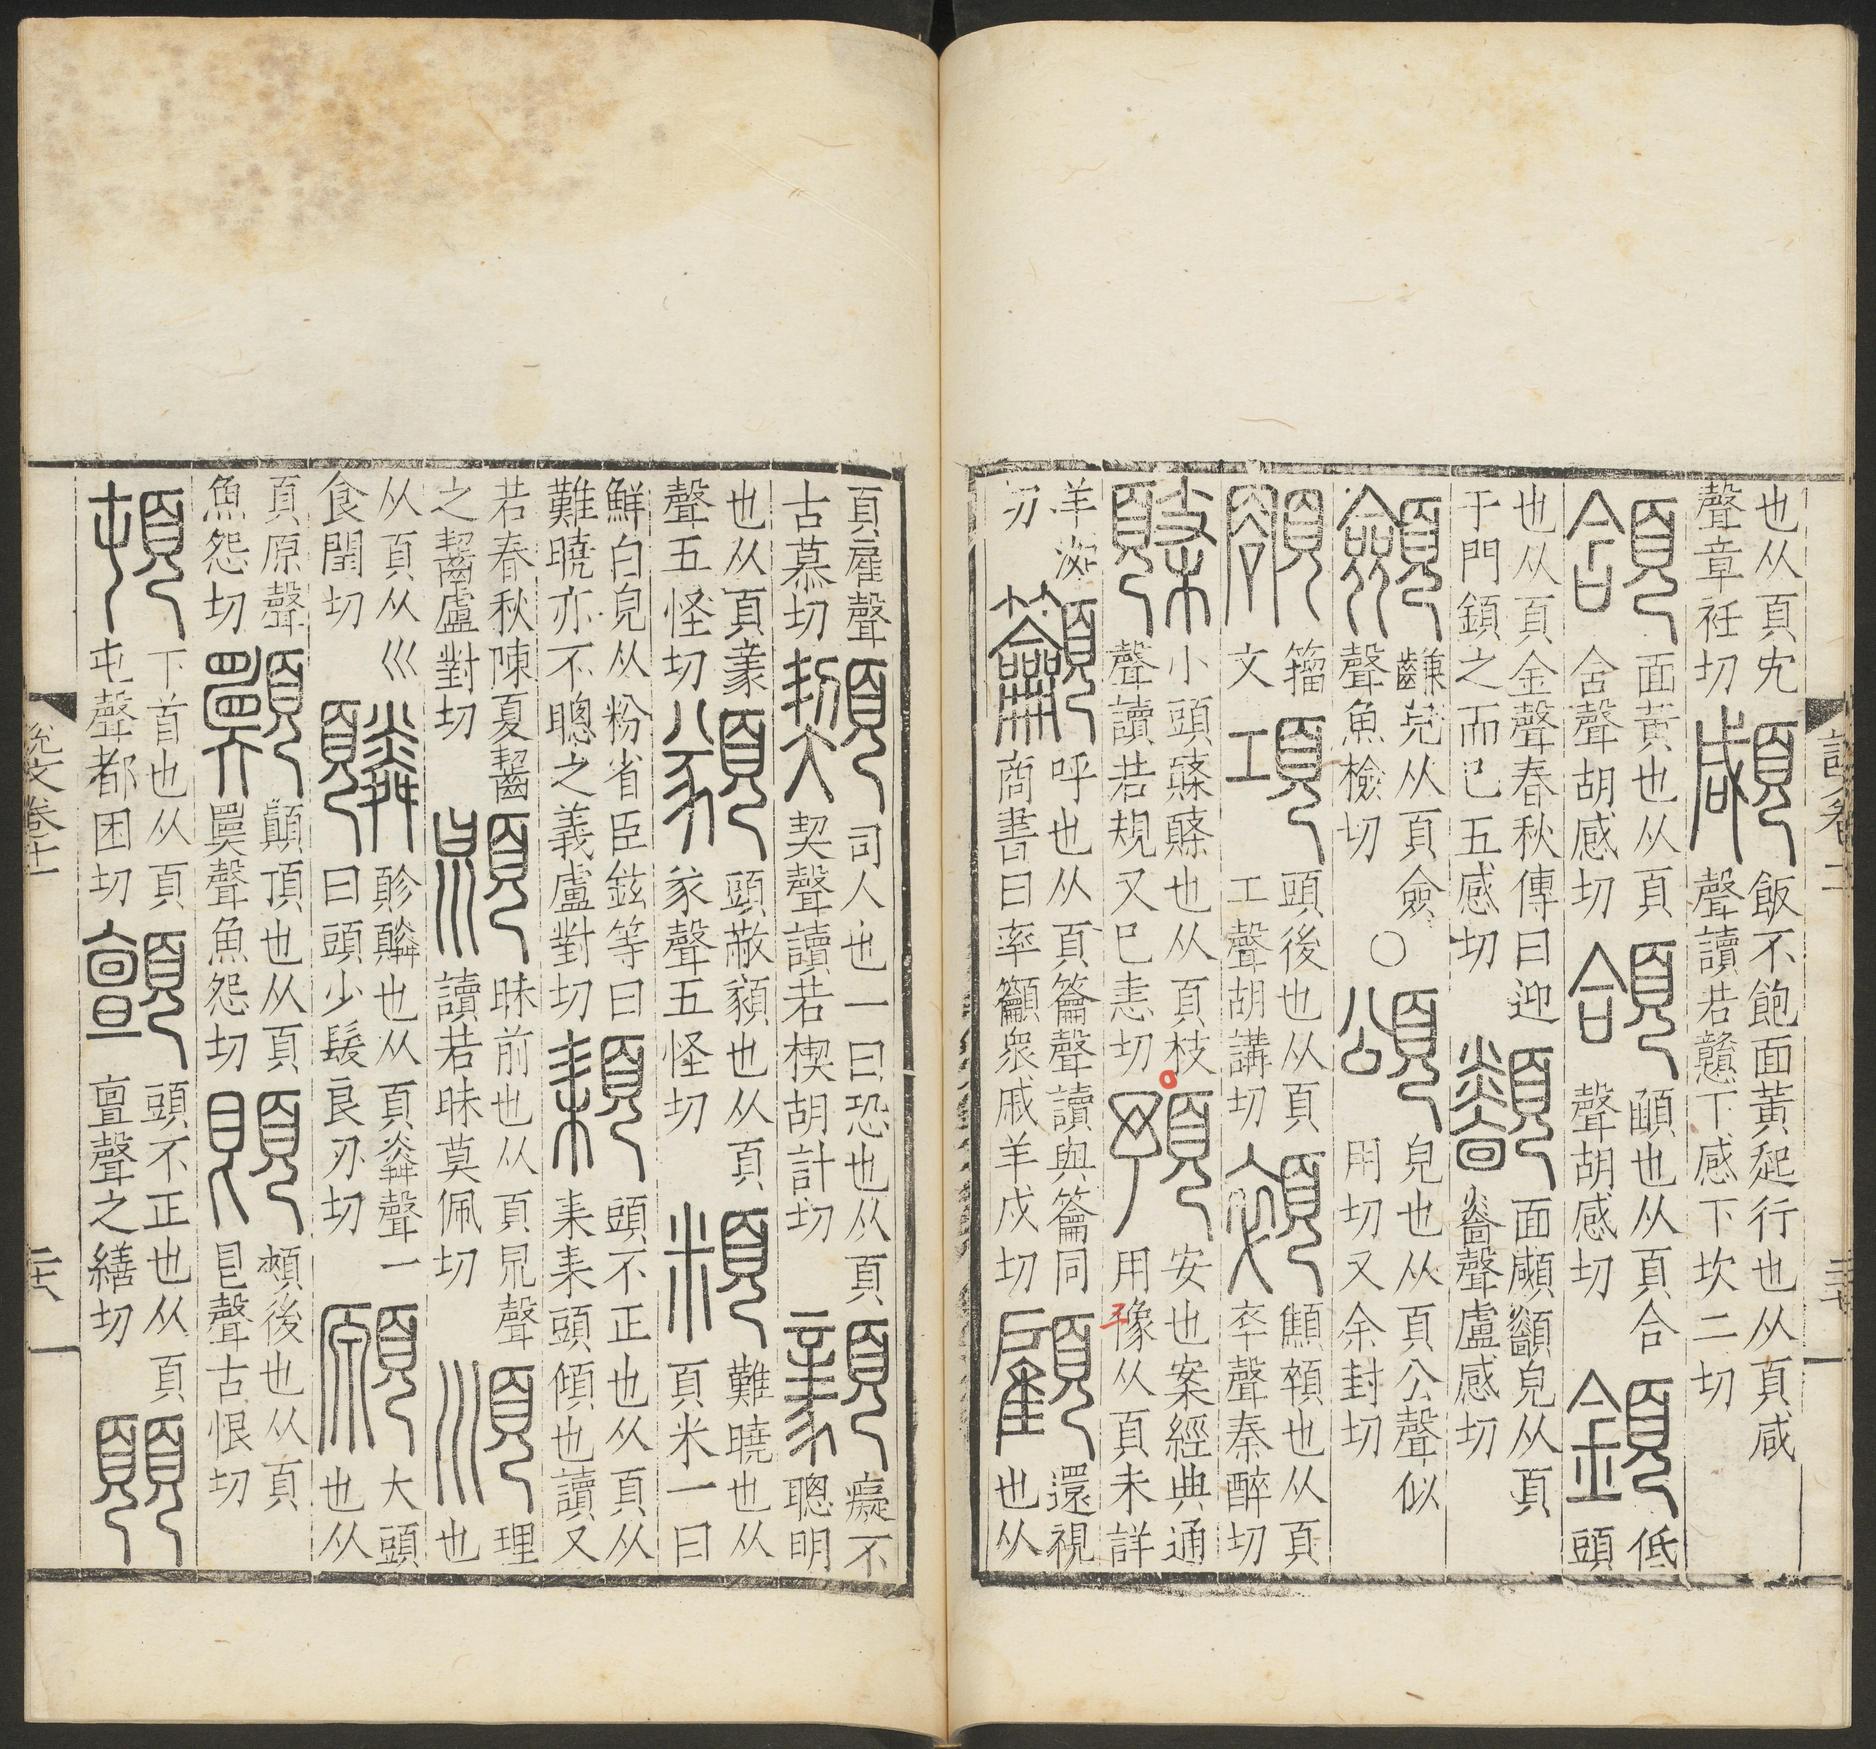 也从頁冘聲章衽切 顑 飯不飽面黃起行也从頁咸聲讀若戇下感下坎二切
頷 面黃也从頁含聲胡感切 頜 顄也从頁合聲胡感切 顉 低頭
也从頁金聲春秋傳曰迎于門顉之而已五感切 顲 面顑顲皃从頁㐭聲盧感切
顩 䶢皃从頁僉聲魚檢切 ○ 頌 皃也从頁公聲似用切又余封切
額 籀文 項 頭後也从頁工聲胡講切 顇 顦顇也从頁卒聲秦醉切
䫌 小頭䫌䫌也从頁枝聲讀若規又已恚切 預 安也案經典通用豫从頁未詳
羊洳切 籲 呼也从頁籥聲讀與籥同商書曰率籲衆戚羊戍切 顧 還視也从
頁雇聲古慕切 䫔 司人也一曰恐也从頁契聲讀若楔胡計切 顡 癡不聰明
也从頁豙聲五怪切 頭蔽顡也从頁聲五怪切 類 難曉也从頁米一曰
鮮白皃从粉省臣鉉等曰難曉亦不聰之義盧對切 頛 頭不正也从頁从耒耒頭傾也讀又
若春秋陳夏齧之齧盧對切 昧前也从頁聲讀若昧莫佩切 順 理也
从頁从巛食閏切 也从頁粦聲一曰頭少髮良刃切 願 大頭也从
頁原聲魚怨切 顛頂也从頁聲魚怨切 頣 頰後也从頁皀聲古恨切
頓 下首也从頁屯聲都困切 顫 頭不正也从頁亶聲之繕切
說文卷十一 二十八